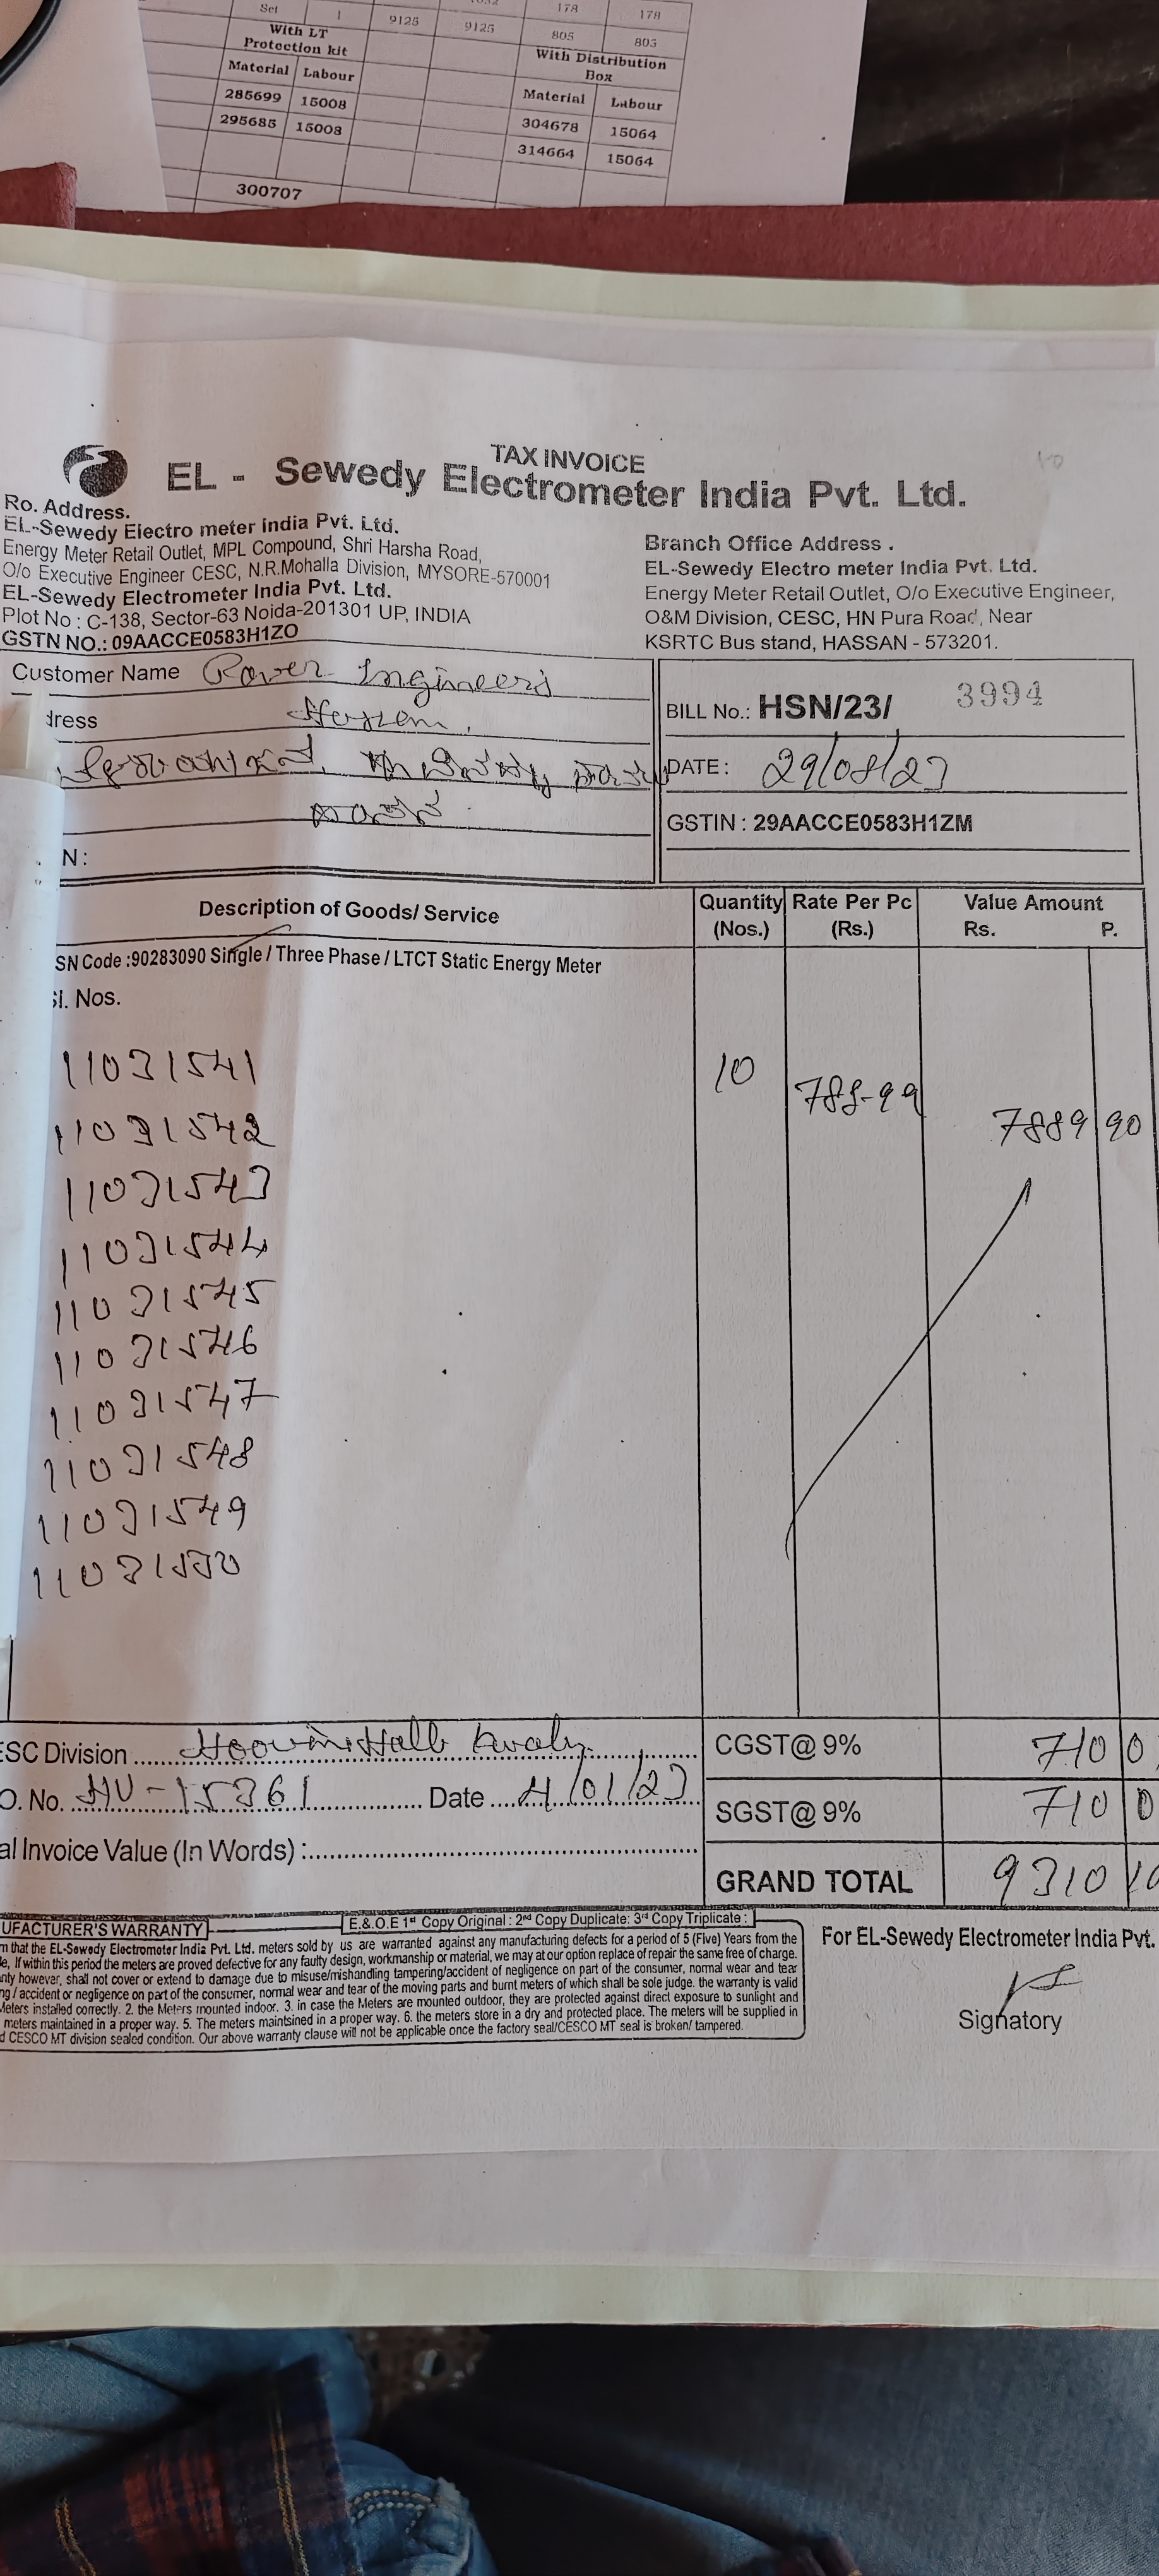 Set 1 9125 9125 178 178
805 805
With LT Protection kit
With Distribution Box
Material Labour
Material Labour
285699 15008
304678 15064
295685 15008
314664 15064
300707
TAX INVOICE
EL - Sewedy Electrometer India Pvt. Ltd.
Ro. Address.
EL-Sewedy Electro meter India Pvt. Ltd.
Energy Meter Retail Outlet, MPL Compound, Shri Harsha Road,
O/o Executive Engineer CESC, N.R.Mohalla Division, MYSORE-570001
EL-Sewedy Electrometer India Pvt. Ltd.
Plot No : C-138, Sector-63 Noida-201301 UP, INDIA
GSTN NO.: 09AACCE0583H1ZO
Branch Office Address .
EL-Sewedy Electro meter India Pvt. Ltd.
Energy Meter Retail Outlet, O/o Executive Engineer,
O&M Division, CESC, HN Pura Road, Near
KSRTC Bus stand, HASSAN - 573201.
Customer Name Power Engineers
dress Hassan,
N :
BILL No.: HSN/23/ 3994
DATE : 29/08/23
GSTIN : 29AACCE0583H1ZM
Description of Goods/ Service
Quantity (Nos.)
Rate Per Pc (Rs.)
Value Amount
Rs. P.
SN Code :90283090 Single / Three Phase / LTCT Static Energy Meter
Sl. Nos.
11031541
10 788-99 7889 90
11031542
11031543
11031544
11031545
11031546
11031547
11031548
11031549
11031550
ESC Division
CGST@ 9% 710 0
O. No. HU-15361 Date 4/01/23
SGST@ 9% 710 0
al Invoice Value (In Words) :
GRAND TOTAL 9310
UFACTURER'S WARRANTY
E.& O.E 1st Copy Original : 2nd Copy Duplicate: 3rd Copy Triplicate :
m that the EL-Sewedy Electrometer India Pvt. Ltd. meters sold by us are warranted against any manufacturing defects for a period of 5 (Five) Years from the
e, If within this period the meters are proved defective for any faulty design, workmanship or material, we may at our option replace of repair the same free of charge.
nty however, shall not cover or extend to damage due to misuse/mishandling tampering/accident of negligence on part of the consumer, normal wear and tear
ng / accident or negligence on part of the consumer, normal wear and tear of the moving parts and burnt meters of which shall be sole judge. the warranty is valid
Meters installed correctly. 2. the Meters mounted indoor. 3. in case the Meters are mounted outdoor, they are protected against direct exposure to sunlight and
meters maintained in a proper way. 5. The meters maintsined in a proper way. 6. the meters store in a dry and protected place. The meters will be supplied in
d CESCO MT division sealed condition. Our above warranty clause will not be applicable once the factory seal/CESCO MT seal is broken/ tampered.
For EL-Sewedy Electrometer India Pvt.
Signatory